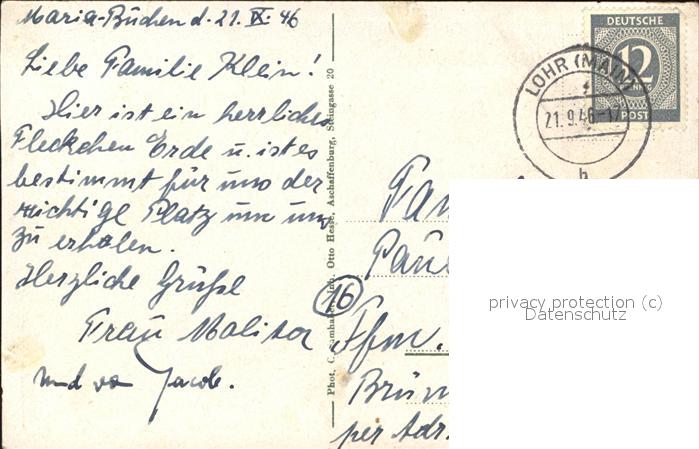 Maria-Buchen d. 21. IX. 46
Liebe Familie Klein!
Hier ist ein herrliches
Fleckchen Erde u. ist es
bestimmt für uns der
richtige Platz um uns
zu erholen.
Herzliche Grüße
Frau
und von
Phot. C. Samhaber, Inh. Otto Hesse, Aschaffenburg, Steingasse 20
DEUTSCHE
12
PFENNIG
POST
LOHR (MAIN)
21.9.46-17
b
Fam
Pau
16
Ffm.
Brün
per Adr.
privacy protection (c)
Datenschutz